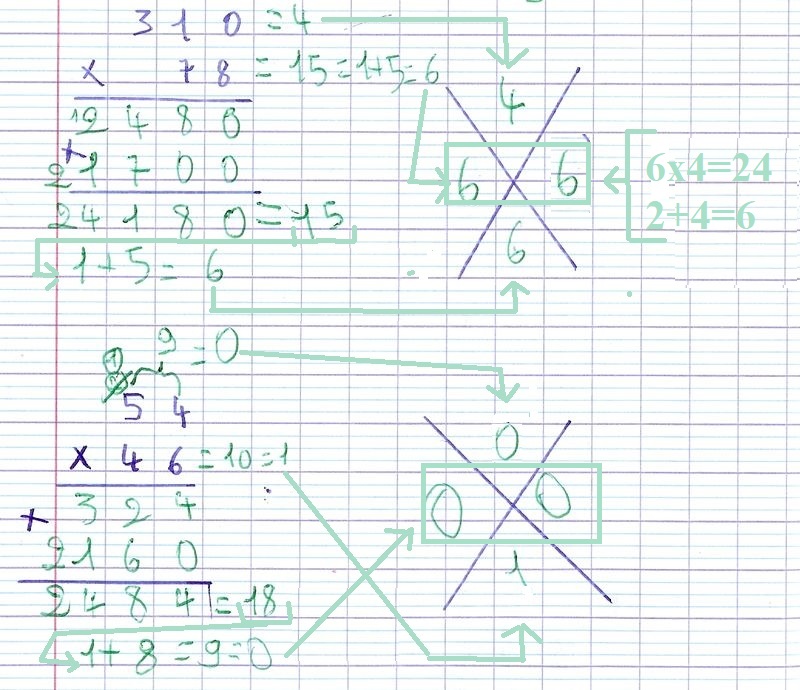 3 1 0 = 4
x 7 8 = 15 = 1+5 = 6
4
1
2 4 8 0
+
2 1 7 0 0
6 6
6x4=24
2+4=6
2 4 1 8 0 = 15
1+5 = 6
6
9 = 0
1
5 4
0
x 4 6 = 10 = 1
0 0
3 2 4
+
2 1 6 0
1
2 4 8 4 = 18
1+ 8 = 9 = 0